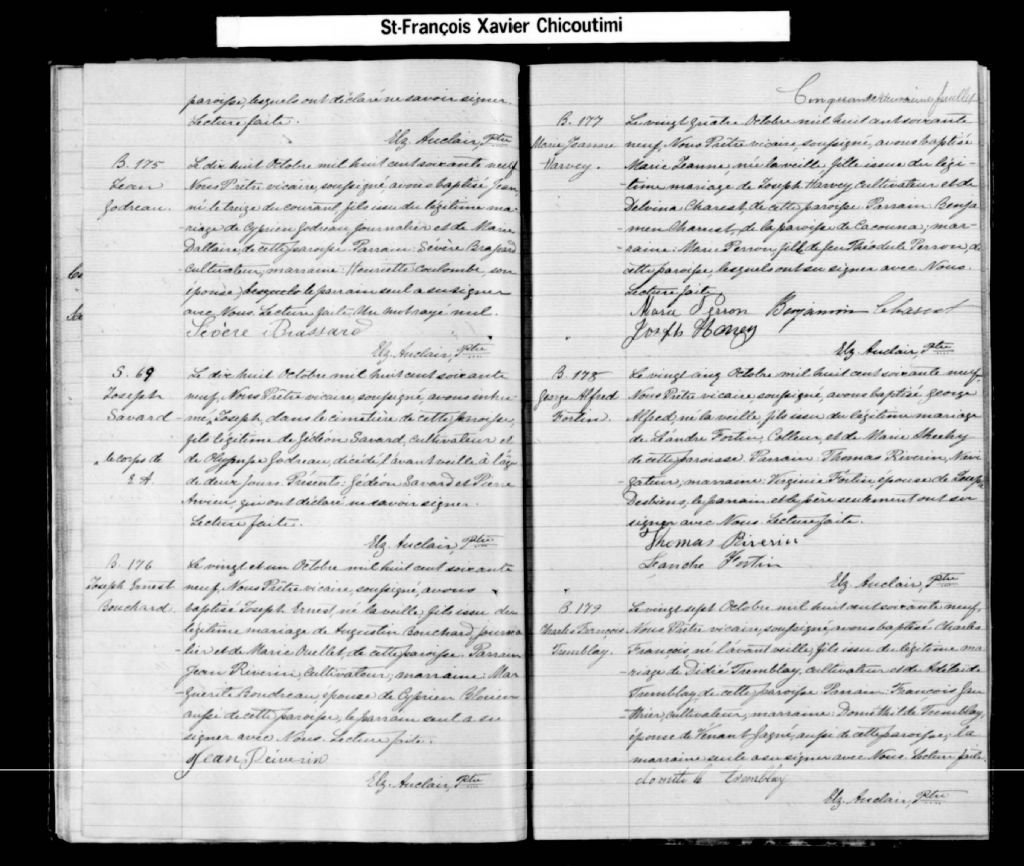 St-François Xavier Chicoutimi
paroisse, lesquels ont déclaré ne savoir signer.
Lecture faite.
Elz. Auclair, Ptre
B. 175
Jean
Godreau.
Le dix huit Octobre mil huit cent soixante neuf
Nous Prêtre vicaire, soussigné, avons baptisé Jean
né le treize du courant, fils issu du légitime ma-
-riage de Cyprien Godreau journalier et de Marie
Dallaire, de cette paroisse. Parrain: Sévère Brassard
cultivateur, marraine: Henriette Coulombe, son
épouse, lesquels le parrain seul a su signer
avec Nous. Lecture faite. Un mot rayé nul.
Sévère Brassard
Elz. Auclair, Ptre
S. 69
Joseph
Savard
le corps de
E. A.
Le dix huit Octobre mil huit cent soixante
neuf, Nous Prêtre vicaire, soussigné, avons inhu-
mé Joseph, dans le cimetière de cette paroisse,
fils légitime de Gédéon Savard, cultivateur et
de Godreau, décédé l'avant veille à l'âge
de deux jours. Présents: Gédéon Savard et Pierre
qui ont déclaré ne savoir signer.
Lecture faite.
Elz. Auclair, Ptre
B. 176
Joseph Ernest
Bouchard
Le vingt et un Octobre mil huit cent soixante
neuf, Nous Prêtre vicaire, soussigné, avons
baptisé Joseph Ernest, né la veille, fils issu du
légitime mariage de Augustin Bouchard, journa-
lier et de Marie Ouellet, de cette paroisse. Parrain
Jean Riverin, cultivateur; marraine: Mar-
-guerite Boudreau, épouse de Cyprien
aussi de cette paroisse, le parrain seul a su
signer avec Nous. Lecture faite.
Jean Riverin
Elz. Auclair, Ptre
feuillet
B. 177
Marie Jeanne
Harvey.
Le vingt quatre Octobre mil huit cent soixante
neuf, Nous Prêtre vicaire, soussigné, avons baptisé
Marie Jeanne, née la veille, fille issue du légi-
-time mariage de Joseph Harvey, cultivateur et de
Delvina Charest, de cette paroisse. Parrain Benja
min Charest, de la paroisse de Cacouna; mar-
raine: Marie Perron, fille de feu Théodule Perron, de
cette paroisse, lesquels ont su signer avec Nous.
Lecture faite.
Maria Perron Benjamin
Joseph
Elz. Auclair, Ptre
B. 178
George Alfred
Fortin.
Le vingt cinq Octobre mil huit cent soixante neuf,
Nous Prêtre vicaire, soussigné, avons baptisé George
Alfred, né la veille, fils issu du légitime mariage
de Léandre Fortin, Colleur, et de Marie
de cette paroisse. Parrain: Thomas Riverin, Navi
gateur, marraine: Virginie Fortin, épouse de Joseph
Desbiens, le parrain et le père seulement ont su
signer avec Nous. Lecture faite.
Thomas Riverin
Leandre Fortin
Elz. Auclair, Ptre
B. 179
Charles François
Tremblay.
Le vingt sept Octobre mil huit cent soixante neuf,
Nous Prêtre vicaire, soussigné, avons baptisé Charles
François né l'avant veille, fils issu du légitime ma-
-riage de Didié Tremblay, cultivateur et de Adélaïde
Tremblay, de cette paroisse. Parrain: François Gau
thier, cultivateur, marraine: Domithilde Tremblay,
épouse de Venant Gagné, aussi de cette paroisse, la
marraine seule a su signer avec Nous. Lecture faite.
tremblay
Elz. Auclair, Ptre